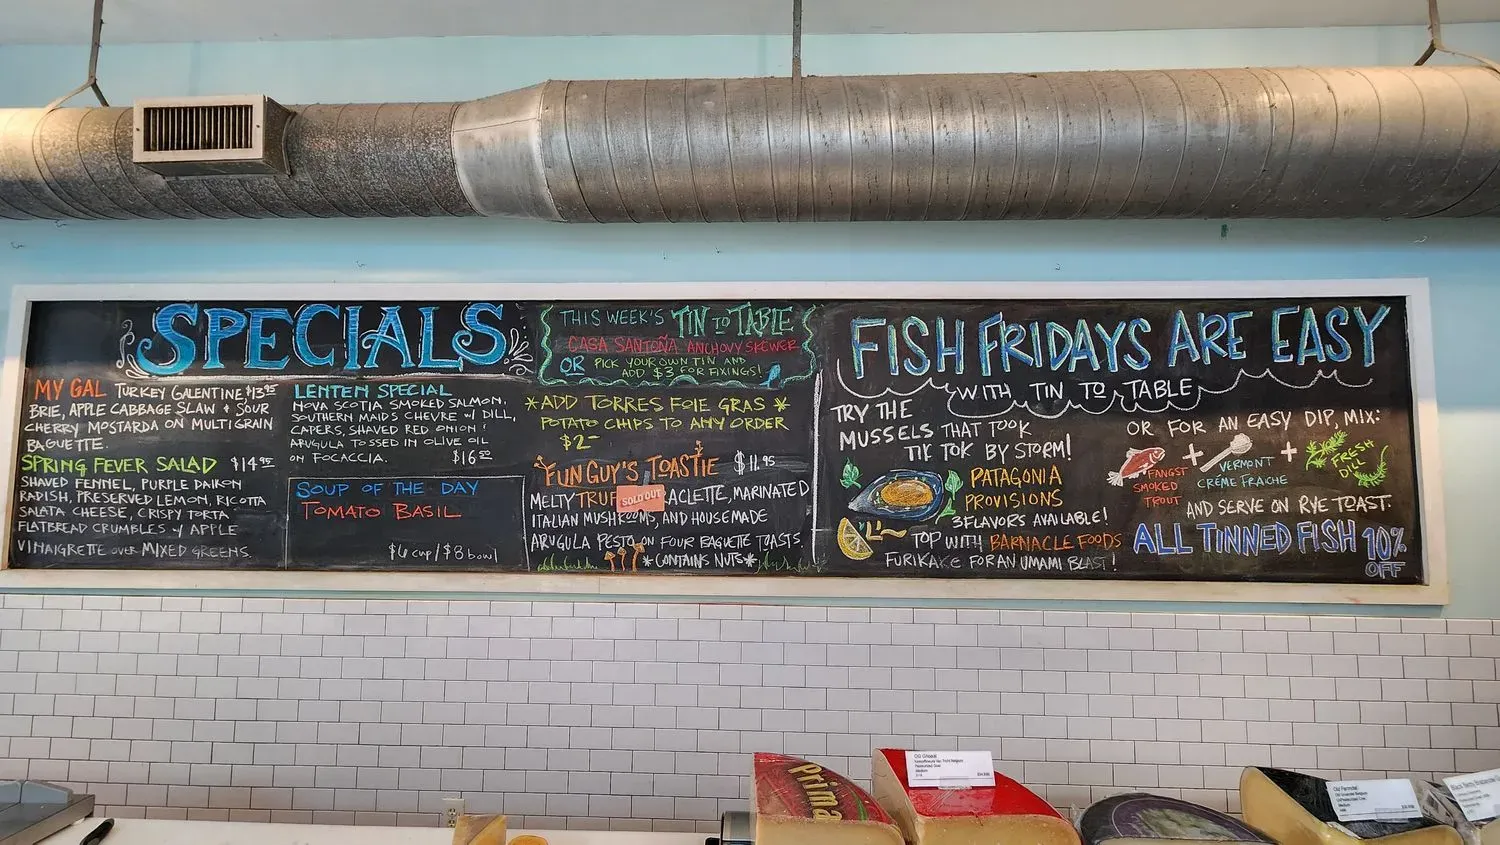 SPECIALS
MY GAL TURKEY GALENTINE $13.95
BRIE, APPLE CABBAGE SLAW + SOUR
CHERRY MOSTARDA ON MULTIGRAIN
BAGUETTE.
SPRING FEVER SALAD $14.95
SHAVED FENNEL, PURPLE DAIKON
RADISH, PRESERVED LEMON, RICOTTA
SALATA CHEESE, CRISPY TORTA
FLATBREAD CRUMBLES w/ APPLE
VINAIGRETTE OVER MIXED GREENS.
LENTEN SPECIAL
NOVA SCOTIA SMOKED SALMON,
SOUTHERN MAID'S CHEVRE w/ DILL,
CAPERS, SHAVED RED ONION !
ARUGULA TOSSED IN OLIVE OIL
ON FOCACCIA. $16.50
SOUP OF THE DAY
TOMATO BASIL
$6 cup / $8 bowl
THIS WEEK'S TIN TO TABLE
CASA SANTOÑA ANCHOVY SKEWER
OR PICK YOUR OWN TIN AND
ADD $3 FOR FIXINGS!
*ADD TORRES FOIE GRAS *
POTATO CHIPS TO ANY ORDER
$2-
FUN GUY'S TOASTIE $11.95
MELTY TRUF SOLD OUT ACLETTE, MARINATED
ITALIAN MUSHROOMS, AND HOUSEMADE
ARUGULA PESTO ON FOUR BAGUETTE TOASTS.
*CONTAINS NUTS*
FISH FRIDAYS ARE EASY
WITH TIN TO TABLE
TRY THE
MUSSELS THAT TOOK
TIK TOK BY STORM!
PATAGONIA
PROVISIONS
3 FLAVORS AVAILABLE!
TOP WITH BARNACLE FOODS
FURIKAKE FOR AN UMAMI BLAST!
OR FOR AN EASY DIP, MIX:
FANGST
SMOKED
TROUT
+
VERMONT
CRÈME FRAICHE
+
FRESH
DILL
AND SERVE ON RYE TOAST.
ALL TINNED FISH 10%
OFF
Prima
Old Farmdal